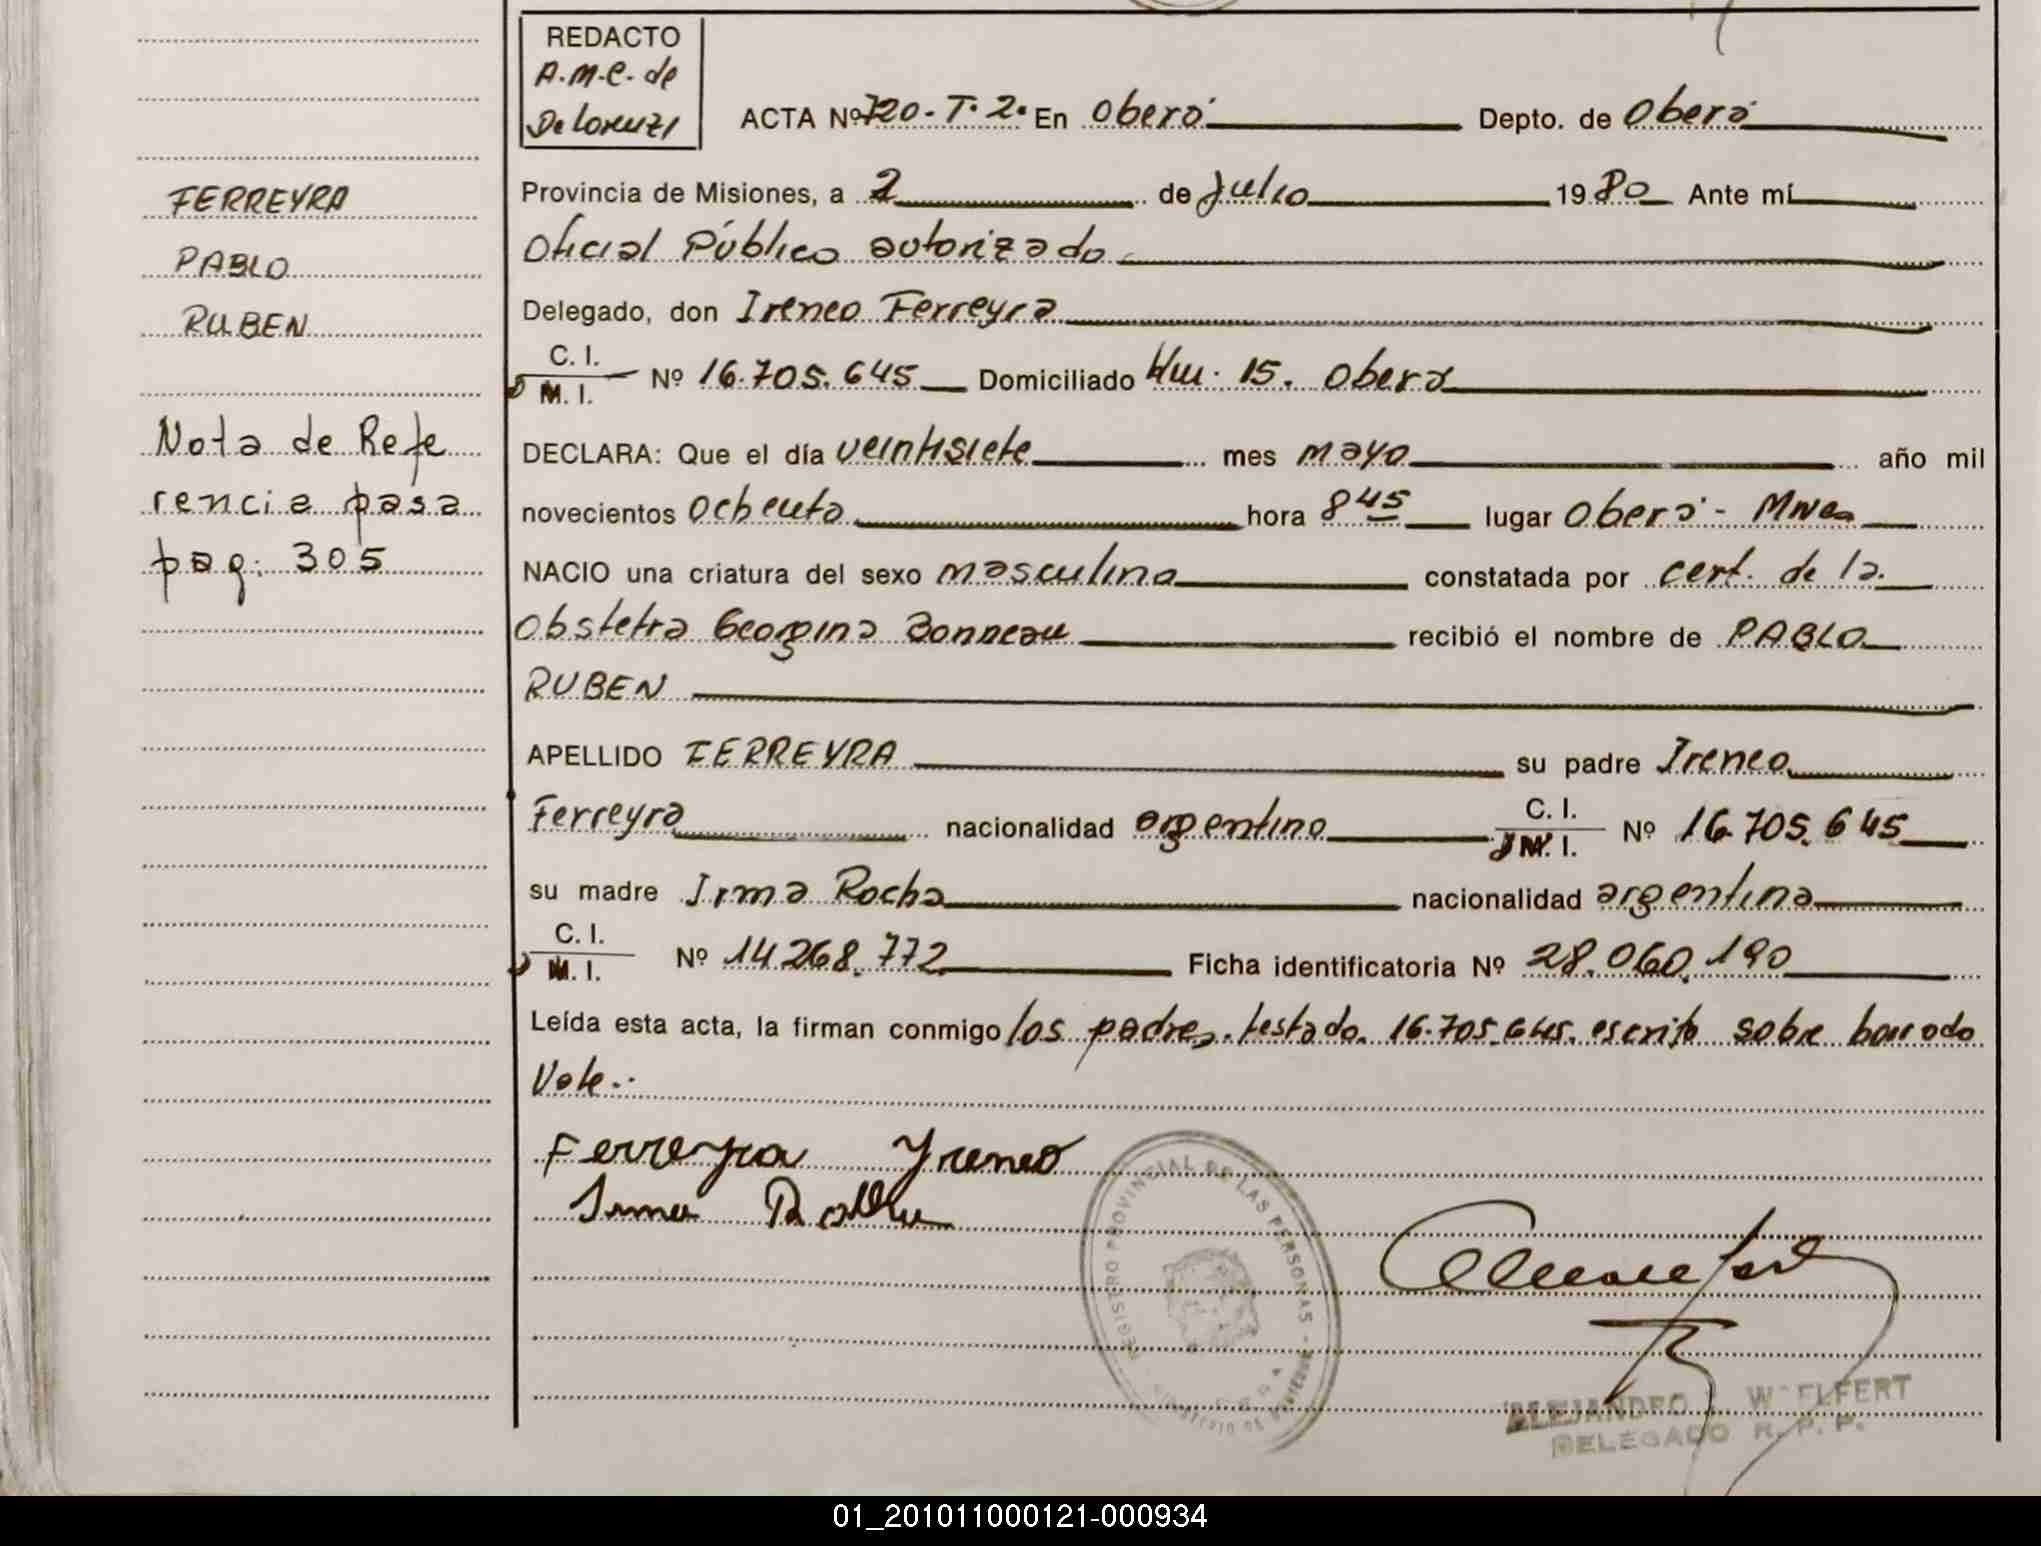 REDACTO
A.M.C. de
De Lorenzi
ACTA Nº 720-T.2. En Oberá Depto. de Oberá
Provincia de Misiones, a 2 de Julio 1980 Ante mí
Oficial Público autorizado
Delegado, don Ireneo Ferreyra
C. I.
M. I. Nº 16.705.645 Domiciliado Km. 15. Oberá
DECLARA: Que el día veintisiete mes mayo año mil
novecientos ochenta hora 8 45 lugar Oberá - Mnes
NACIO una criatura del sexo masculino constatada por cert. de la
Obstetra Georgina Bonneau recibió el nombre de PABLO
RUBEN
APELLIDO FERREYRA su padre Ireneo
Ferreyra nacionalidad argentino C. I. M. I. Nº 16.705.645
su madre Irma Rocha nacionalidad argentina
C. I.
M. I. Nº 14.268.772 Ficha identificatoria Nº 28.060.190
Leída esta acta, la firman conmigo los padres. testado. 16.705.645. escrito sobre borrado
Vale.-
Ferreyra Yreneo
Irma Rocha
FERREYRA
PABLO
RUBEN
Nota de Refe
rencia pasa
pag: 305
REGISTRO PROVINCIAL DE LAS PERSONAS
ALEJANDRO
DELEGADO R. P. P.
01_201011000121-000934